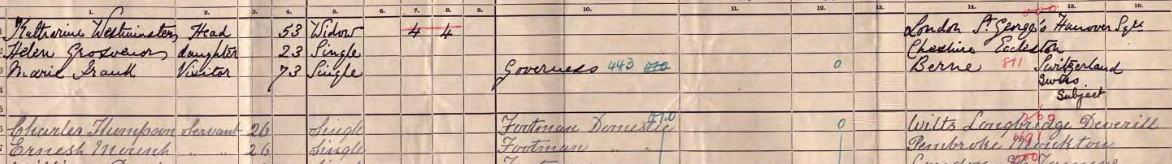 1. 2. 3. 4. 5. 6. 7. 8. 9. 10. 11. 12. 13. 14. 15. 16.
Katharine Westminster Head 53 Widow 4 4 London St. George's Hanover Sqre
Helen Grosvenor daughter 23 Single Cheshire Eccleston
Marie Visitor 73 Single Governess 443 0 Berne 811 Switzerland
Swiss
Subject
Charles Thompson Servant 26 Single Footman Domestic 0 Wilts Longbridge Deverill
Ernest 26 Single Footman Pembroke